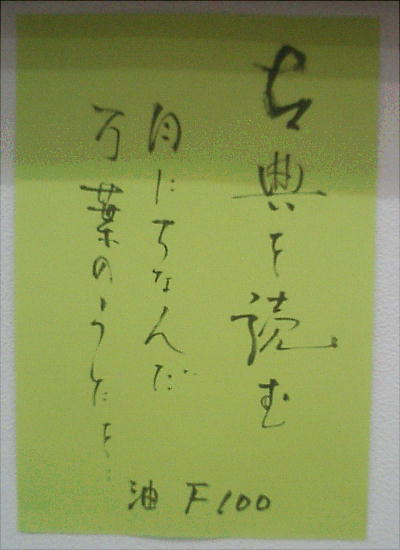 古典を読む
月にちなんだ
万葉のうたを…
油 F100